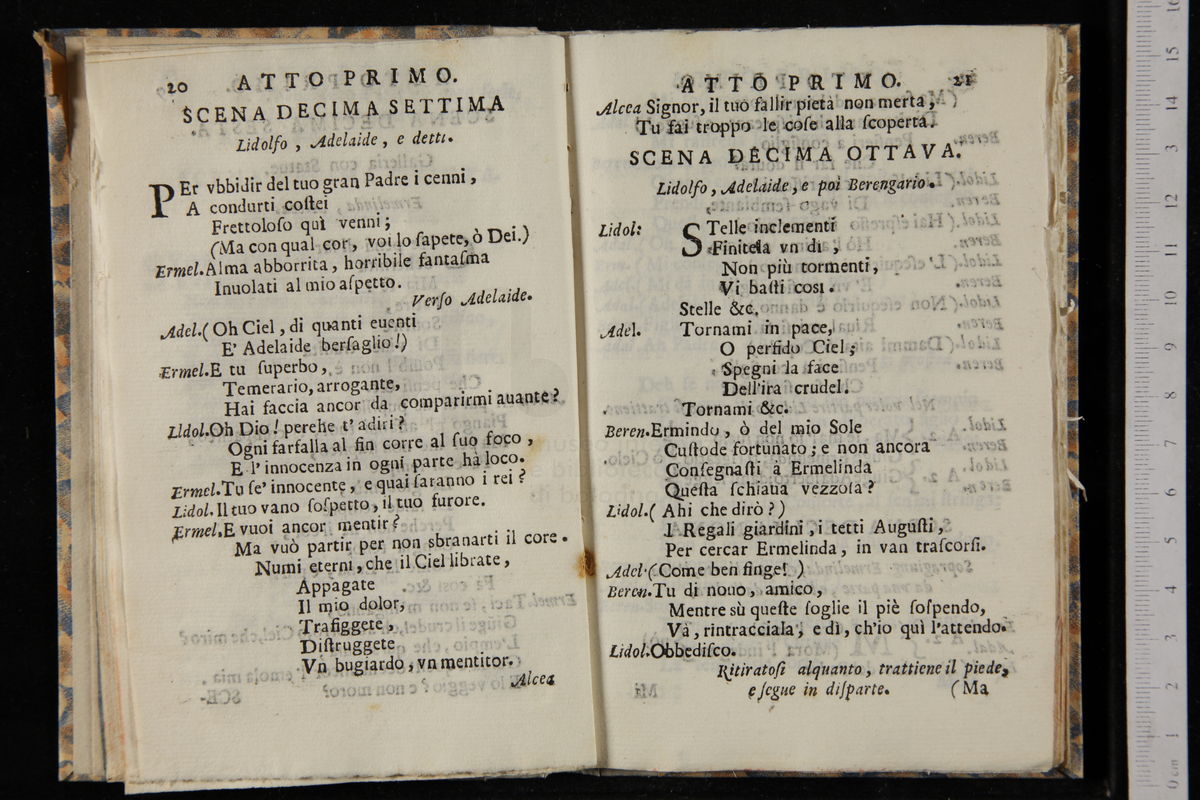 20 ATTO PRIMO.
SCENA DECIMA SETTIMA
Lidolfo, Adelaide, e detti.
PEr vbbidir del tuo gran Padre i cenni,
A condurti coſtei
Frettoloſo quì venni;
(Ma con qual cor, voi lo ſapete, ò Dei.)
Ermel. Alma abborrita, horribile fantaſma
Inuolati al mio aſpetto.
Verſo Adelaide.
Adel. (Oh Ciel, di quanti euenti
E' Adelaide berſaglio!)
Ermel. E tu ſuperbo,
Temerario, arrogante,
Hai faccia ancor da comparirmi auante?
Lidol. Oh Dio! perehe t'adiri?
Ogni farfalla al fin corre al ſuo foco,
E l'innocenza in ogni parte hà loco.
Ermel. Tu ſe' innocente, e quai ſaranno i rei?
Lidol. Il tuo vano ſoſpetto, il tuo furore.
Ermel. E vuoi ancor mentir?
Ma vuò partir per non sbranarti il core.
Numi eterni, che il Ciel librate,
Appagate
Il mio dolor,
Trafiggete,
Diſtruggete
Vn bugiardo, vn mentitor.
Alcea
ATTO PRIMO. 21
Alcea Signor, il tuo fallir pietà non merta,
Tu fai troppo le coſe alla ſcoperta.
SCENA DECIMA OTTAVA.
Lidolfo, Adelaide, e poi Berengario.
Lidol: STelle inclementi
Finitela vn dì,
Non più tormenti,
Vi baſti così.
Stelle &c.
Adel. Tornami in pace,
O perfido Ciel;
Spegni la face
Dell'ira crudel.
Tornami &c.
Beren. Ermindo, ò del mio Sole
Cuſtode fortunato; e non ancora
Conſegnaſti à Ermelinda
Queſta ſchiaua vezzoſa?
Lidol. (Ahi che dirò?)
I Regali giardini, i tetti Auguſti,
Per cercar Ermelinda, in van traſcorſi.
Adel. (Come ben finge!)
Beren. Tu di nouo, amico,
Mentre sù queſte ſoglie il piè ſoſpendo,
Và, rintracciala, e dì, ch'io quì l'attendo.
Lidol. Obbediſco.
Ritiratoſi alquanto, trattiene il piede,
e ſegue in diſparte. (Ma